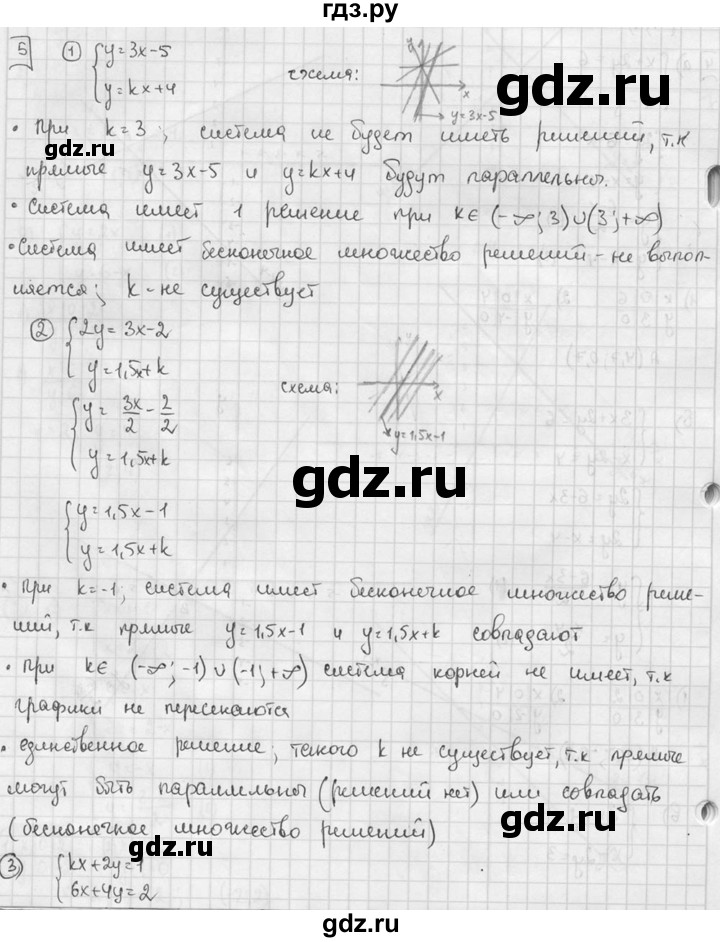 гдз.ру
5 1 { y=3x-5
y=kx+4
схема: y x y=3x-5
• При k=3; система не будет иметь решений, т.к
прямые y=3x-5 и y=kx+4 будут параллельны.
• Система имеет 1 решение при k∈(-∞; 3)∪(3; +∞)
• Система имеет бесконечное множество решений - не выпол-
няется; k - не существует
2 { 2y=3x-2
y=1,5x+k
схема: x y=1,5x-1
{ y=3x/2-2/2
y=1,5x+k
{ y=1,5x-1
y=1,5x+k
• При k=-1; система имеет бесконечное множество реше-
ний, т.к прямые y=1,5x-1 и y=1,5x+k совпадают
• При k∈(-∞; -1)∪(-1; +∞) система корней не имеет, т.к
графики не пересекаются
• единственное решение; такого k не существует, т.к прямые
могут быть параллельны (решений нет) или совпадать
(бесконечное множество решений)
3 { kx+2y=1
6x+4y=2
gdz.ru
gdz.ru
gdz.ru
gdz.ru
gdz.ru
gdz.ru
gdz.ru
gdz.ru
gdz.ru
gdz.ru
gdz.ru